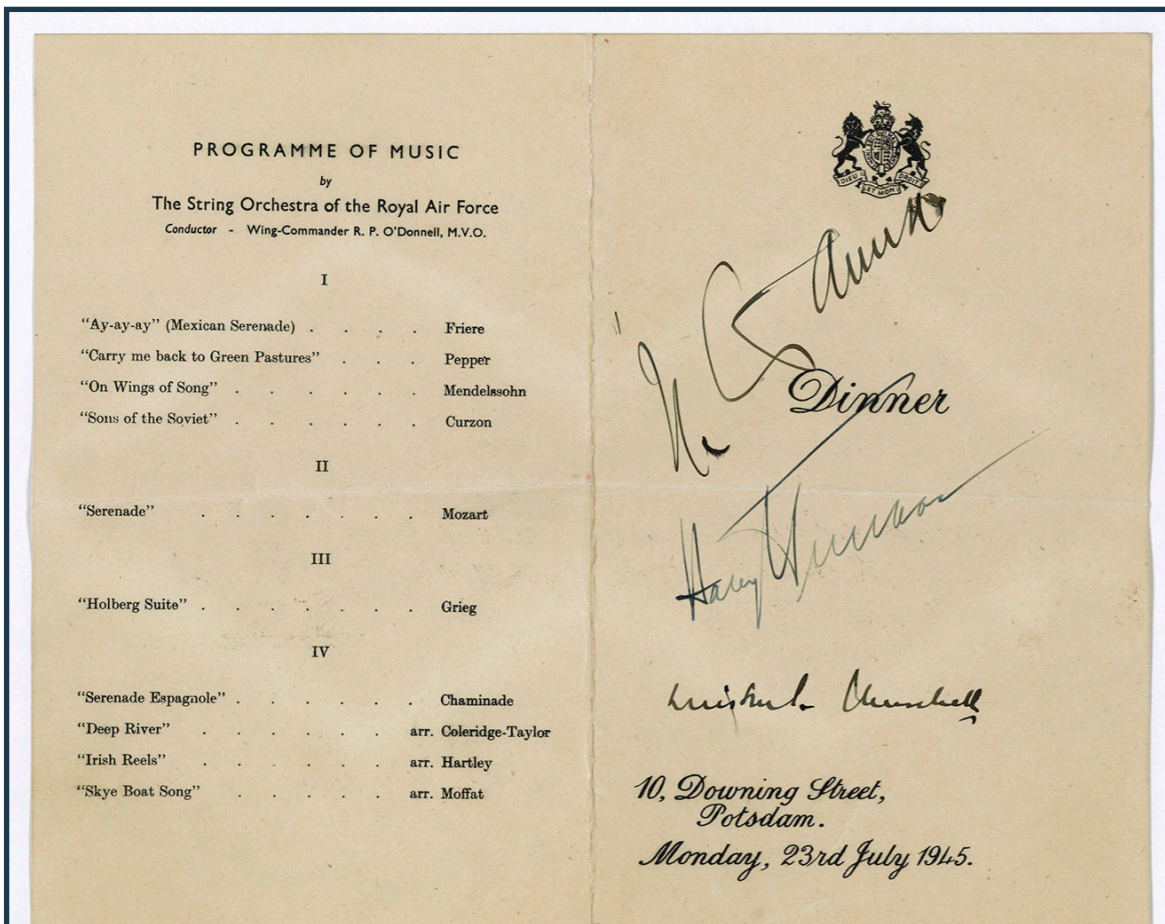 PROGRAMME OF MUSIC
by
The String Orchestra of the Royal Air Force
Conductor - Wing-Commander R. P. O'Donnell, M.V.O.
I
"Ay-ay-ay" (Mexican Serenade) . . . . Friere
"Carry me back to Green Pastures" . . . Pepper
"On Wings of Song" . . . . . . Mendelssohn
"Sons of the Soviet" . . . . . . Curzon
II
"Serenade" . . . . . . . Mozart
III
"Holberg Suite" . . . . . . . Grieg
IV
"Serenade Espagnole" . . . . . . Chaminade
"Deep River" . . . . . . arr. Coleridge-Taylor
"Irish Reels" . . . . . . arr. Hartley
"Skye Boat Song" . . . . . arr. Moffat
DIEU ET MON DROIT
И. Сталин
Dinner
Harry Truman
Winston Churchill
10, Downing Street,
Potsdam.
Monday, 23rd July 1945.